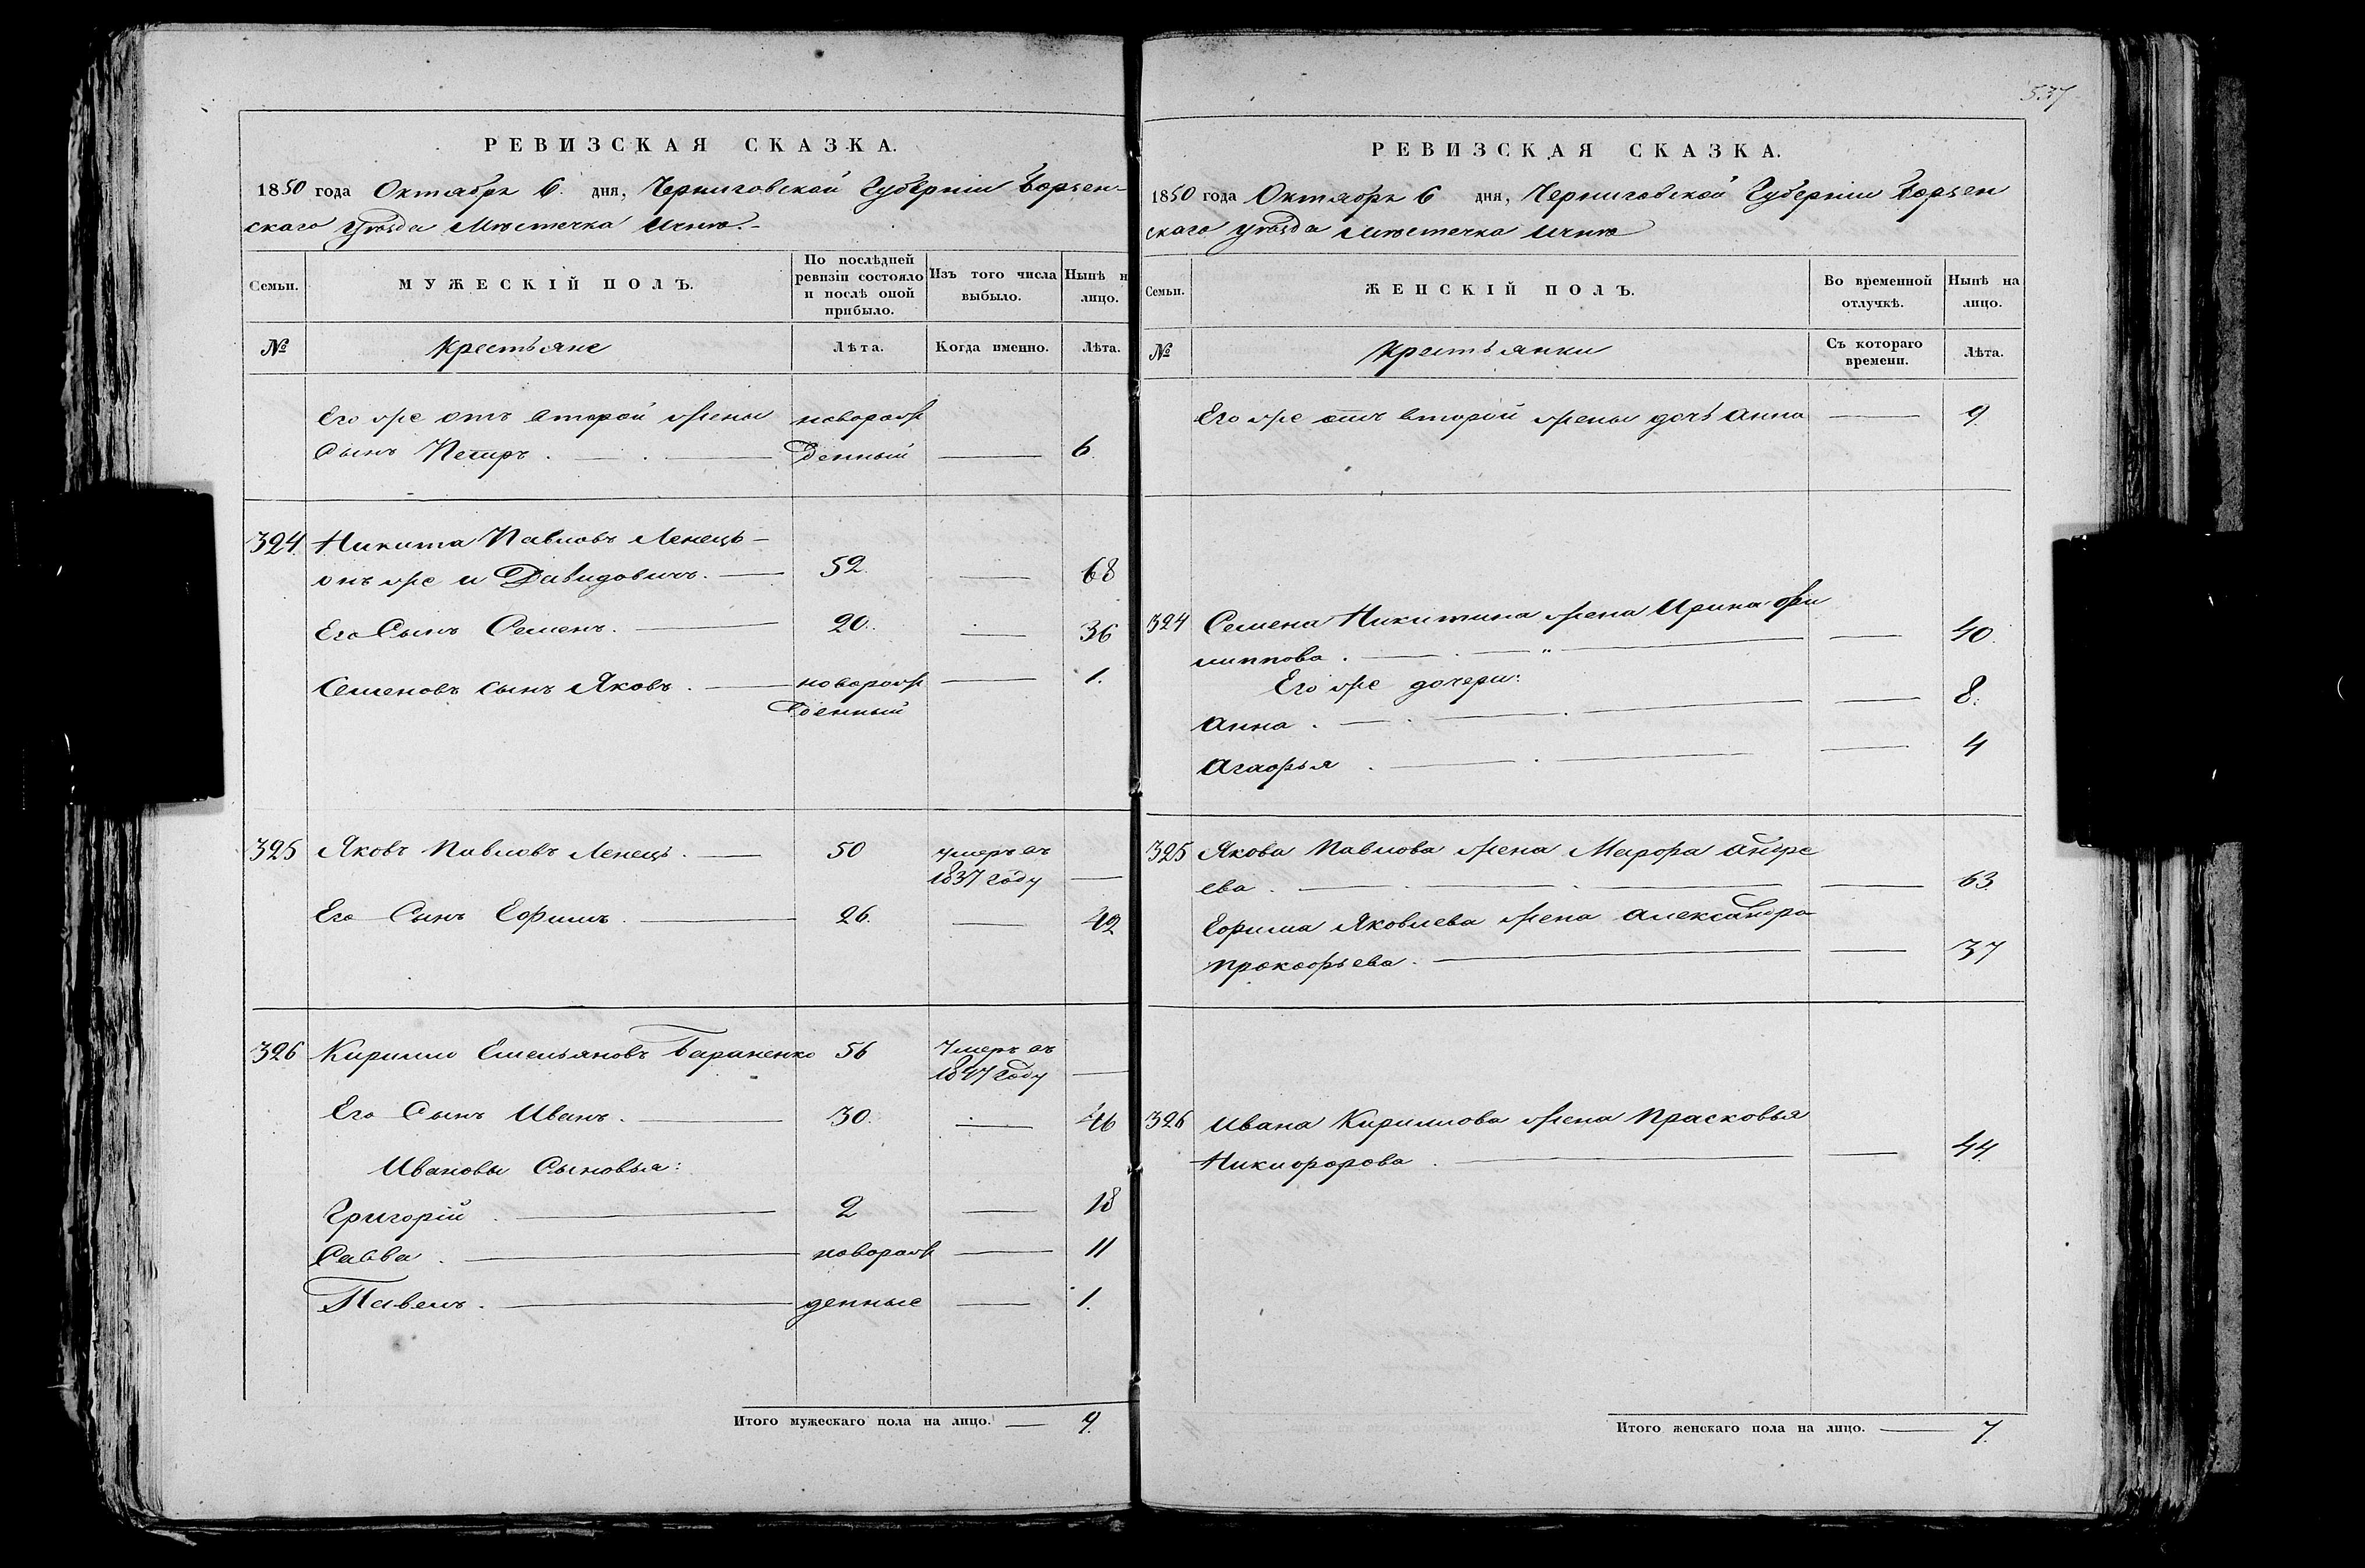 РЕВИЗСКАЯ СКАЗКА.
1850 года Октября 6. дня, Черниговской Губерніи Борзен-
скаго Уѣзда Мѣстечка Ични.-
Семьи.
МУЖЕСКІЙ ПОЛЪ.
По послѣдней
ревизіи состояло
и послѣ оной
прибыло.
Изъ того числа
выбыло.
Нынѣ н
лицо.
№
Крестьяне
Лѣта.
Когда именно.
Лѣта.
Его же отъ второй жены новорож
Сынъ Петръ. денный 6.
324 Никита Павловъ Ленецъ-
онъ же и Давидовичъ. 52. 68
Его Сынъ Семенъ. 20. 36
Семеновъ сынъ Яковъ. новорож 1.
денный
325 Яковъ Павловъ Ленецъ. 50 умеръ въ
1837 году
Его Сынъ Ефимъ. 26. 42
326 Кирилло Емельяновъ Бараненко 56 Умеръ въ
1847 Году
Его Сынъ Иванъ. 30. 46
Ивановы Сыновья:
Григорій. 2 18
Савва. новорож 11
Павелъ. денные 1.
Итого мужескаго пола на лицо. 9.
537
РЕВИЗСКАЯ СКАЗКА.
1850 года Октября 6 дня, Черниговской Губерніи Борзен
скаго Уѣзда Мѣстечка Ични
Семьи.
ЖЕНСКІЙ ПОЛЪ.
Во временной
отлучкѣ.
Нынѣ на
лицо.
№
Крестьянки
Съ котораго
времени.
Лѣта.
Его же отъ второй жены дочь Анна 9
324 Семена Никитина жена Ирина Фи
липпова. 40.
Его же дочери:
Анна. 8.
Агафья. 4
325 Якова Павлова жена Марфа Андре
ева. 63
Ефима Яковлева жена Александра
Прокофьева. 37
326 Ивана Кириллова жена Прасковья
Никифорова. 44.
Итого женскаго пола на лицо. 7.